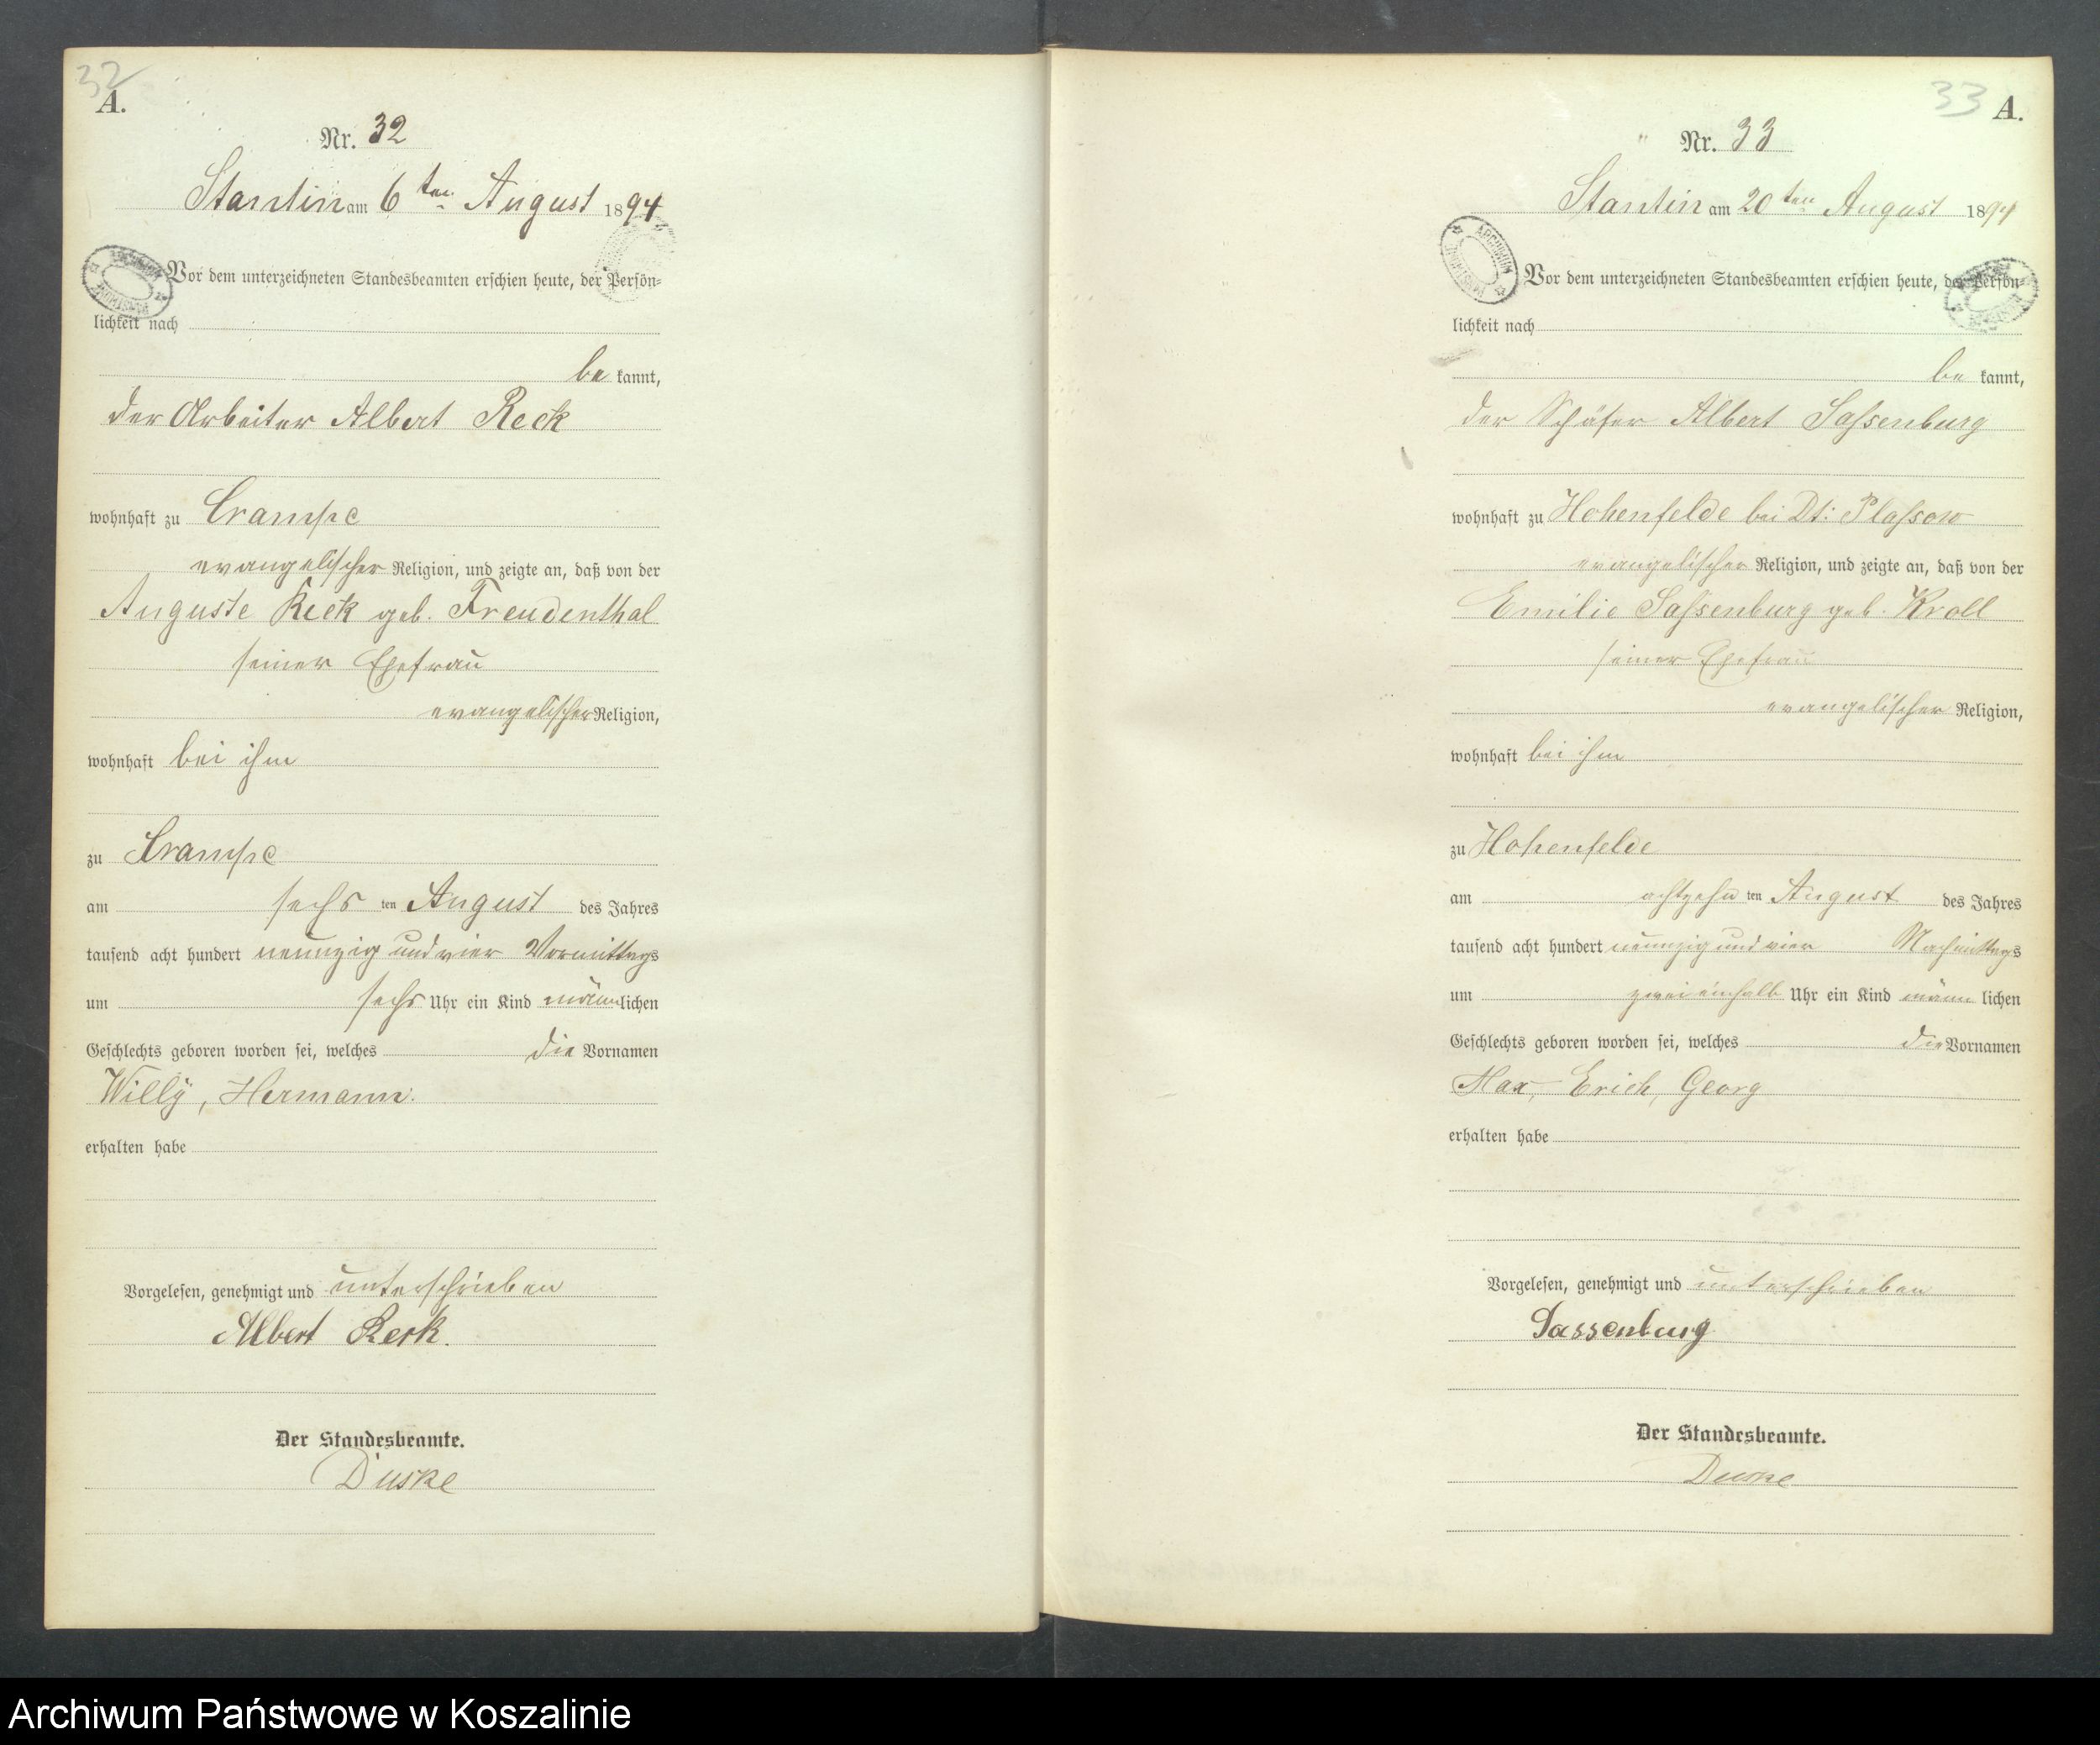 32
A.
Nr. 32
Stantin am 6ten August 1894
Vor dem unterzeichneten Standesbeamten erschien heute, der Persön-
lichkeit nach
be kannt,
der Arbeiter Albert Reck
wohnhaft zu Crampe
evangelischer Religion, und zeigte an, daß von der
Auguste Reck geb. Freudenthal
seiner Ehefrau
evangelischer Religion,
wohnhaft bei ihm
zu Crampe
am sechs ten August des Jahres
tausend acht hundert neunzig und vier Vormittags
um sechs Uhr ein Kind männlichen
Geschlechts geboren worden sei, welches die Vornamen
Willy, Hermann.
erhalten habe
Vorgelesen, genehmigt und unterschrieben
Albert Reck.
Der Standesbeamte.
Duske
33 A.
Nr. 33
Stantin am 20ten August 1894
ARCHIWUM
Vor dem unterzeichneten Standesbeamten erschien heute, der Persön-
lichkeit nach
be kannt,
der Schäfer Albert Saſsenburg
wohnhaft zu Hohenfelde bei Dt: Plaſsow
evangelischer Religion, und zeigte an, daß von der
Emilie Saſsenburg geb. Kroll
seiner Ehefrau
evangelischer Religion,
wohnhaft bei ihm
zu Hohenfelde
am achtzehn ten August des Jahres
tausend acht hundert neunzig und vier Nachmittags
um zwei einhalb Uhr ein Kind männ lichen
Geschlechts geboren worden sei, welches die Vornamen
Max, Erich, Georg
erhalten habe
Vorgelesen, genehmigt und unterschrieben
Sassenburg
Der Standesbeamte.
Duske
Archiwum Państwowe w Koszalinie